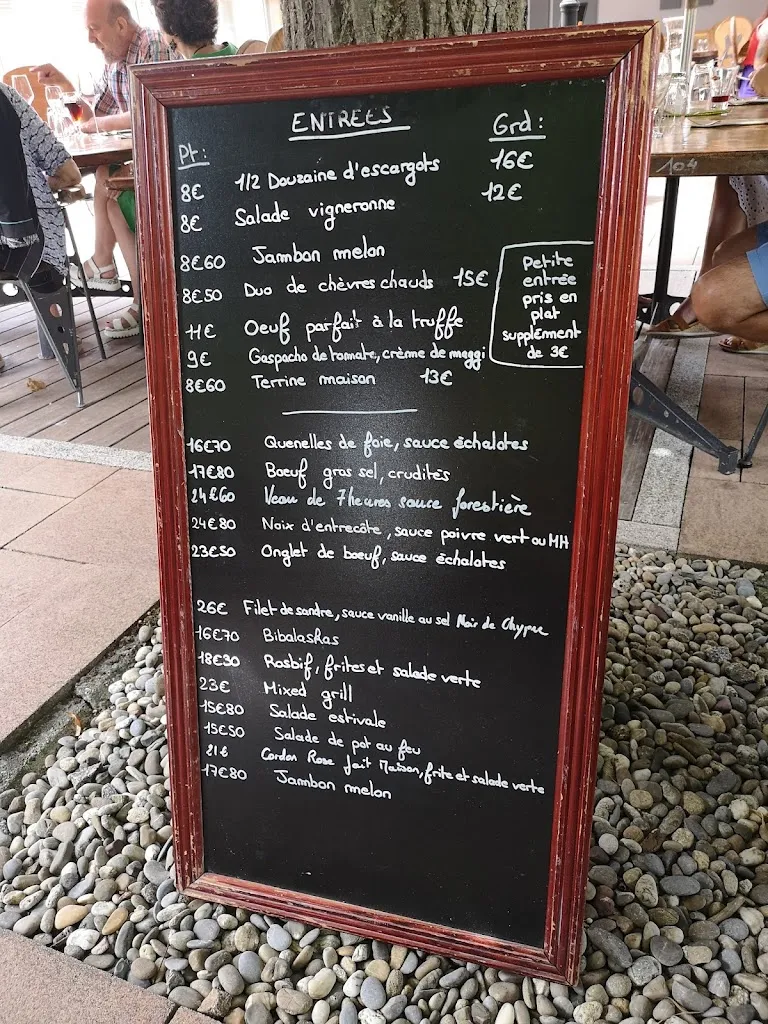 ENTREES
Pt: Grd:
8€ 1/2 Douzaine d'escargots 16€
8€ Salade vigneronne 12€
8€60 Jambon melon
8€50 Duo de chèvres chauds 15€
11€ Oeuf parfait à la truffe
9€ Gaspacho de tomate, crème de maggi
8€60 Terrine maison 13€
Petite
entrée
pris en
plat
supplément
de 3€
16€70 Quenelles de foie, sauce échalotes
17€80 Boeuf gros sel, crudités
24€60 Veau de 7 heures sauce forestière
24€80 Noix d'entrecôte, sauce poivre vert ou MH
23€50 Onglet de boeuf, sauce échalotes
26€ Filet de sandre, sauce vanille au sel Noir de Chypre
16€70 Bibalaskas
18€30 Rosbif, frites et salade verte
23€ Mixed grill
15€80 Salade estivale
15€50 Salade de pot au feu
21€ Cordon Rose fait Maison, frite et salade verte
17€80 Jambon melon
104